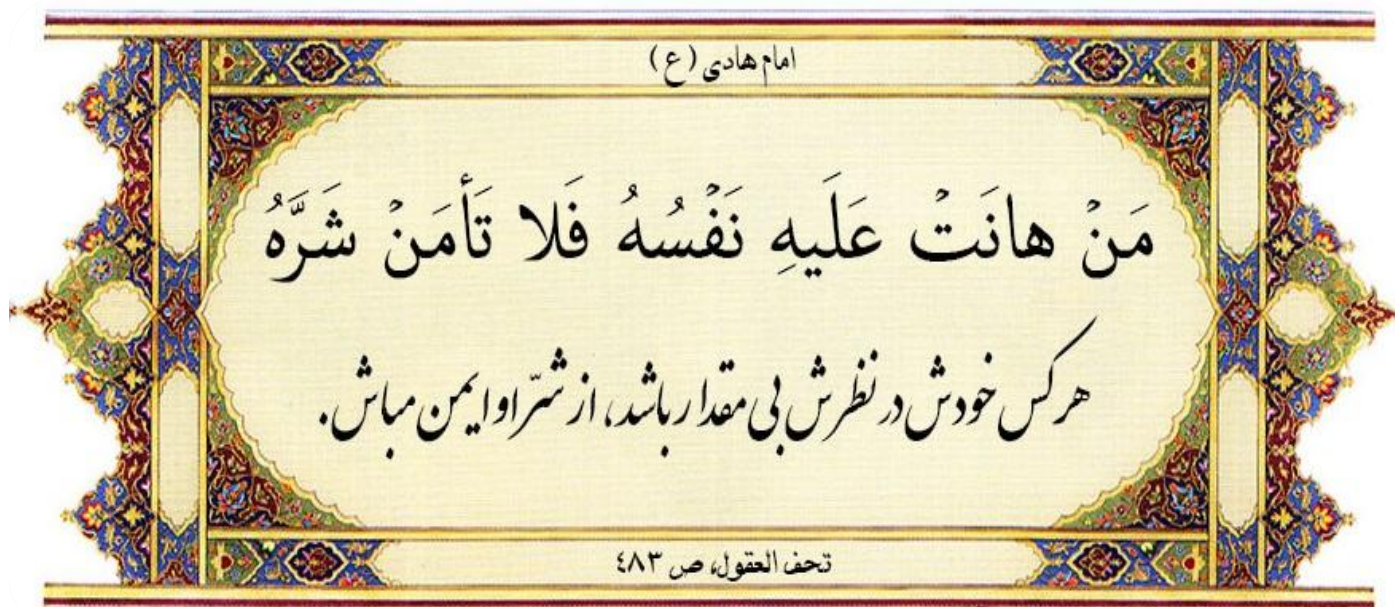 امام هادی (ع)
مَنْ هانَتْ عَلَیهِ نَفْسُهُ فَلا تَأمَنْ شَرَّهُ
هر کس خودش در نظرش بی مقدار باشد، از شرّ او ایمن مباش.
تحف العقول، ص ٤٨٣